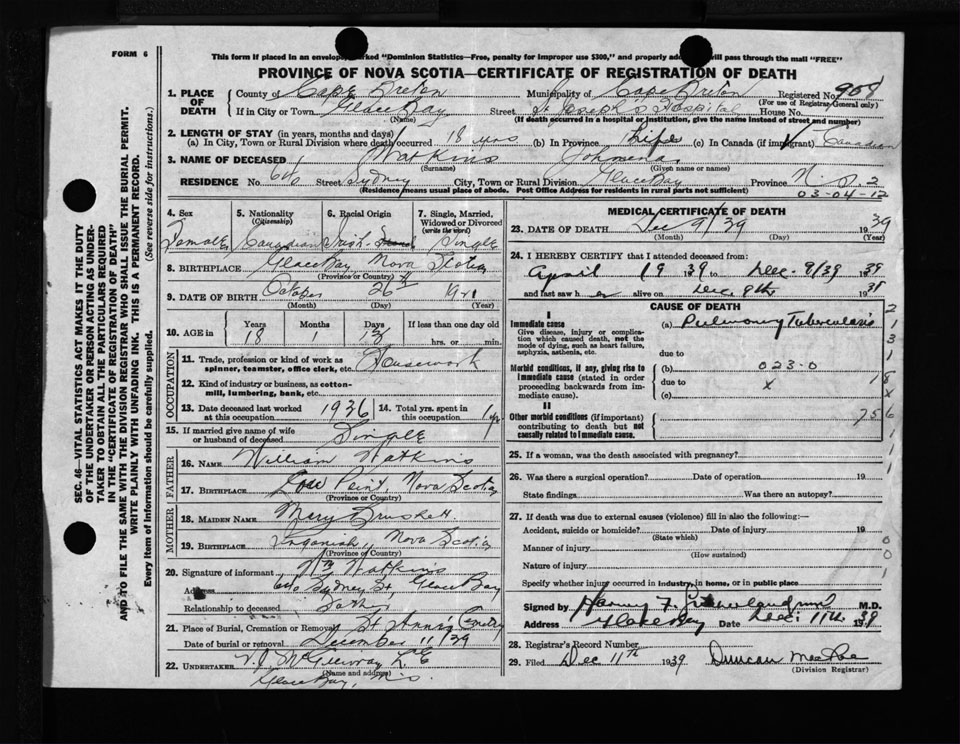 FORM 6
This form if placed in an envelope, marked "Dominion Statistics—Free, penalty for improper use $300," and properly addressed will pass through the mail "FREE"
PROVINCE OF NOVA SCOTIA—CERTIFICATE OF REGISTRATION OF DEATH
1. PLACE OF DEATH County of Cape Breton Municipality of Cape Breton Registered No. 908
(For use of Registrar General only)
If in City or Town Glace Bay (Name) Street St Joseph's Hospital House No.
(If death occurred in a hospital or institution, give the name instead of street and number)
2. LENGTH OF STAY (in years, months and days)
(a) In City, Town or Rural Division where death occurred 18 yrs (b) In Province Life (c) In Canada (if immigrant) Canadian
3. NAME OF DECEASED Watkins (Surname) Johmena (Given name or names)
RESIDENCE No. 646 Street Sydney City, Town or Rural Division Glace Bay Province N.S. 2
(Residence means usual place of abode. Post Office Address for residents in rural parts not sufficient) 03-04-12
4. Sex Female
5. Nationality (Citizenship) Canadian
6. Racial Origin Irish
7. Single, Married, Widowed or Divorced (write the word) Single
8. BIRTHPLACE Glace Bay Nova Scotia
(Province or Country)
9. DATE OF BIRTH October 26th 1921
(Month) (Day) (Year)
10. AGE in Years 18 Months 1 Days 13 If less than one day old hrs. or min.
OCCUPATION
11. Trade, profession or kind of work as spinner, teamster, office clerk, etc. Housework
12. Kind of industry or business, as cotton-mill, lumbering, bank, etc.
13. Date deceased last worked at this occupation 1936 14. Total yrs. spent in this occupation 1 yr
15. If married give name of wife or husband of deceased Single
FATHER
16. NAME William Watkins
17. BIRTHPLACE Low Point, Nova Scotia
(Province or Country)
MOTHER
18. MAIDEN NAME Mary
19. BIRTHPLACE Ingonish, Nova Scotia
(Province or Country)
20. Signature of informant Wm Watkins
Address 646 Sydney St, Glace Bay
Relationship to deceased Father
21. Place of Burial, Cremation or Removal St Anns Cemetery
Date of burial or removal December 11/39
22. UNDERTAKER V.J. McGillivray
(Name and address)
Glace Bay, N.S.
MEDICAL CERTIFICATE OF DEATH
23. DATE OF DEATH Dec 9/39 1939
(Month) (Day) (Year)
24. I HEREBY CERTIFY that I attended deceased from:
April 19 1939 to Dec. 9/39 1939
and last saw her alive on Dec. 9th 1938
CAUSE OF DEATH
I
Immediate cause (a) Pulmonary Tuberculosis
Give disease, injury or complication which caused death, not the mode of dying, such as heart failure, asphyxia, asthenia, etc.
due to
Morbid conditions, if any, giving rise to immediate cause (stated in order proceeding backwards from immediate cause). (b) 023-0
due to x
(c)
II
Other morbid conditions (if important) contributing to death but not causally related to immediate cause.
25. If a woman, was the death associated with pregnancy?
26. Was there a surgical operation? Date of operation 19
State findings Was there an autopsy?
27. If death was due to external causes (violence) fill in also the following:—
Accident, suicide or homicide? Date of injury 19
(State which)
Manner of injury
(How sustained)
Nature of injury
Specify whether injury occurred in industry, in home, or in public place
Signed by Harvey F. Sutherland M.D.
Address Glace Bay Date Dec. 11th 1939
28. Registrar's Record Number
29. Filed Dec 11th 1939 Duncan MacRae
(Division Registrar)
SEC. 46—VITAL STATISTICS ACT MAKES IT THE DUTY
OF THE UNDERTAKER OR PERSON ACTING AS UNDER-
TAKER TO OBTAIN ALL THE PARTICULARS REQUIRED
IN THE "CERTIFICATE OF REGISTRATION OF DEATH"
AND TO FILE THE SAME WITH THE DIVISION REGISTRAR WHO SHALL ISSUE THE BURIAL PERMIT.
WRITE PLAINLY WITH UNFADING INK. THIS IS A PERMANENT RECORD.
Every item of information should be carefully supplied. (See reverse side for instructions.)